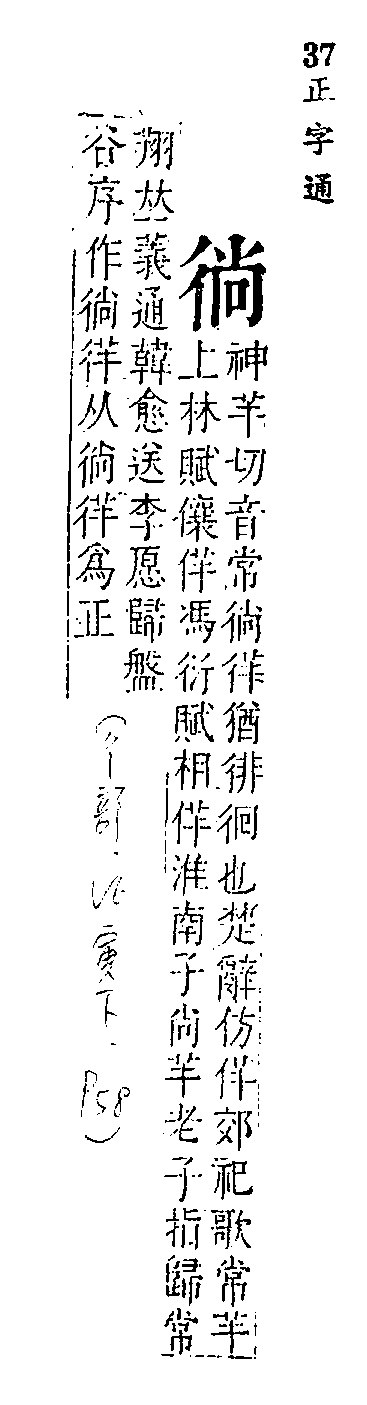 37正字通
徜
神羊切音常徜徉猶徘徊也楚辭仿佯郊祀歌常羊
上林賦儴佯馮衍賦相佯淮南子尙羊老子指歸常
翔丛義通韓愈送李愿歸盤
谷序作徜徉从徜徉爲正
(彳部.寅下.P58)